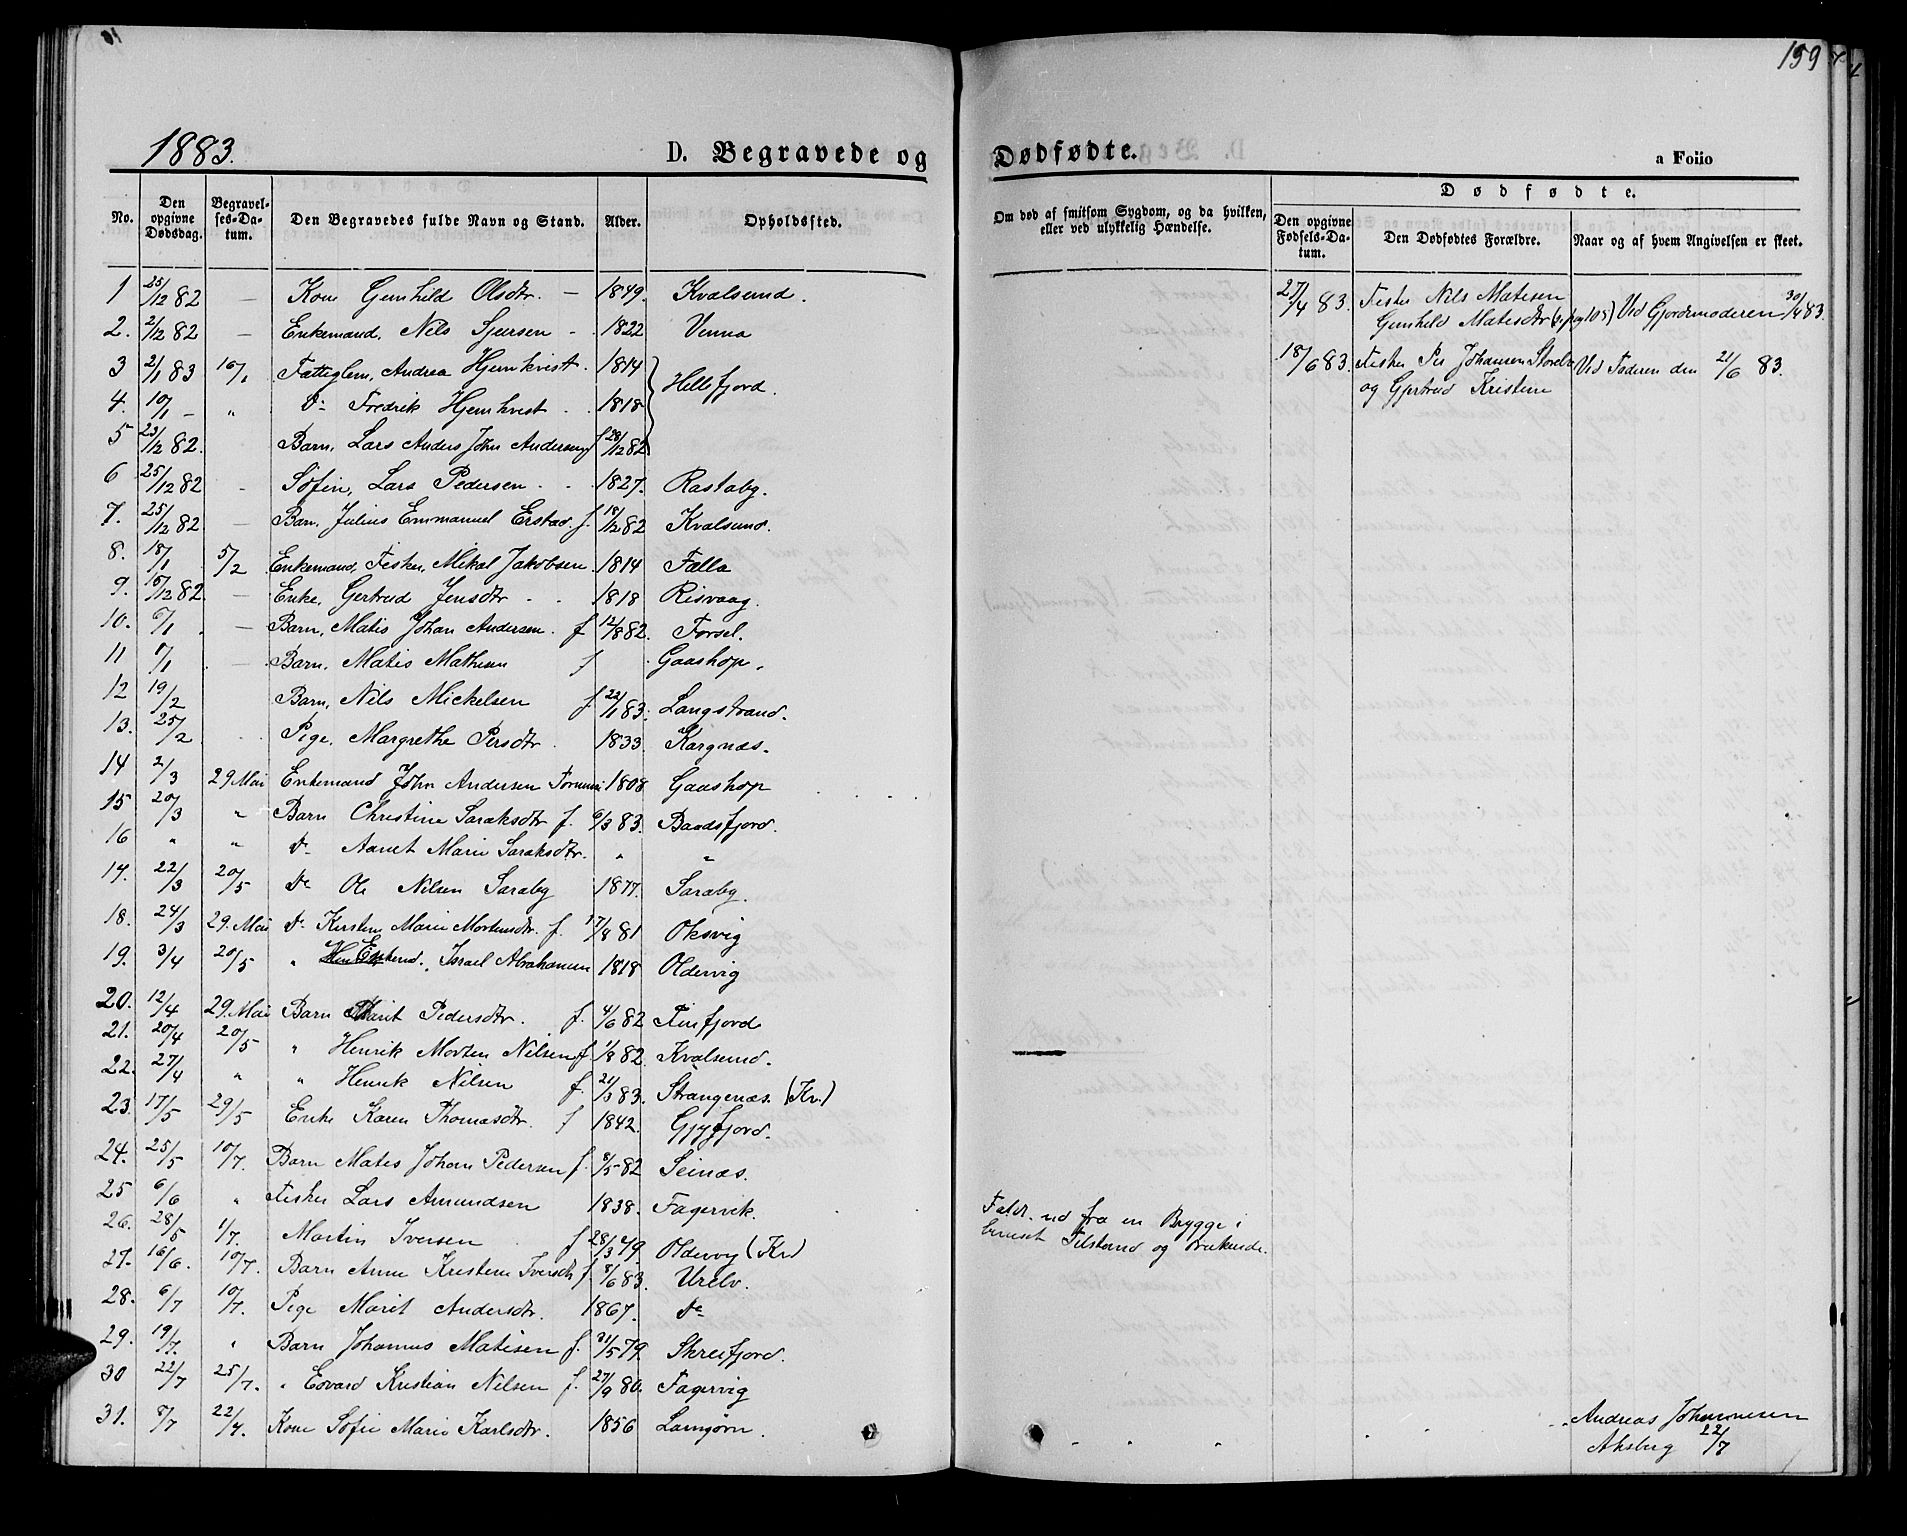 159
1883.
D. Begravede og Dødfødte.
a Foiio
No.
Den opgivne Dødsdag.
Begravelses-Datum.
Den Begravedes fulde Navn og Stand.
Alder.
Opholdssted.
Om død af smitsom Sygdom, og da hvilken, eller ved ulykkelig Hændelse.
Dødfødte.
Den opgivne Fødsels-Datum.
Den Dødfødtes Forældre.
Naar og af hvem Angivelsen er skeet.
1 25/12 82 — Kone Gunhild Olsdtr. — 1849. Kvalsund.
2. 2/12 82 — Enkemand, Nils Sjursen - 1822 Venna
3 2/1 83 16/1 Fattiglem, Andrea Hjemkvist. 1814 Hellefjord.
4. 10/1 - " Do Fredrik Hjemkvist . . 1818
5 23/12 82. Barn, Lars Anders John Andersen f 28/12 82
6 25/12 82 - Lars Pedersen . . 1827. Rastaby.
7. 25/12 82 — Barn, Julius Emmanuel Erstad. f. 18/12 82 Kvalsund.
8. 18/1 5/2 Enkemand, Fisker, Mikal Jakobsen. 1814 Falla
9. 16/12 82. — Enke, Gertrud Jensdtr . . 1818 Risvaag.
10. 6/1 . — Barn, Matis Johan Andersen. f 12/8 82. Forsøl.
11 7/1 . — Barn, Matis Mathisen f . Gaashop.
12 19/2 Barn, Nils Mickelsen f 22/1 83. Langstrand.
13. 25/2 . Pige, Margrethe Persdtr . 1833. Kargnæs.
14 2/3 29 Mai Enkemand John Andersen 1808 Gaashop
15 20/3 " Barn Christine Saraksdtr f. 6/3 83. Baadsfjord.
16 " " Do Marie Saraksdtr. " "
17. 22/3 20/5 Do Ole Nilsen Saraby 1877. Saraby.
18. 24/3 29. Mai Do Kirsten Marie Mortensdtr. f. 17/8 81 Oksvig
19. 3/4 20/5 " Israel Abrahamsen 1818 Oldervig
20. 12/4 29. Mai Barn Marit Pedersdtr. f. 4/6 82 Finfjord
21. 20/4 20/5 " Henrik Morten Nilsen f. 1/8 82. Kvalsund.
22. 27/4 " " Henrik Nilsen f. 21/3 83. Strangenæs. (Kv.)
23. 17/5 29/5 Enke Karen Thomasdtr. f 1842.
24. 25/5 10/7. Barn Matis Johan Pedersen f. 8/5 82 Seinæs.
25 6/6 " Fisker Lars Amundsen 1838. Fagervik.
26. 28/5 1/7. Martin Iversen f 28/3 49. Oldervig (Kv) Faldt ud fra en Brygge i beruset Tilstand og druknede.
27. 16/6. 10/7. Barn Anne Kristine Iversdtr f. 8/6 83. Urelv.
28. 6/7 10/7. Pige Marit Andersdtr. 1867. Do
29. 19/7. " Barn Johannes Matisen f. 31/5 79. Skreifjord.
30 22/7 25/7. " Edvard Kristian Nilsen f. 27/9 80. Fagervig
31. 8/7 22/7. Kone Sofie Marie Karlsdtr. 1856
Andreas Johannesen
22/7
27/4 83. Fisker Nils Matisen
Gunhild Matisdtr Ved Gjordemoderen 30/4 83.
18/6 83. Fisker Per Johansen Ved Faderen den 21/6 83.
og Gjertrud Kristine